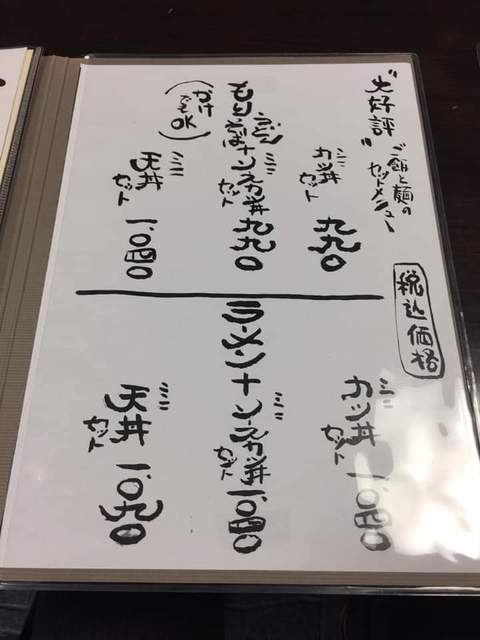 "大好評"
ご飯と麺の
セットメニュー
税込価格
ミニ
カツ丼
セット
九九〇
うどん
もりそば+
ミニ
ソースカツ丼
セット
九九〇
(かけ
でも
OK)
ミニ
天丼
セット
一、〇四〇
ラーメン+
ミニ
カツ丼
セット
一、〇四〇
ミニ
ソースカツ丼
セット
一、〇四〇
ミニ
天丼
セット
一、〇九〇